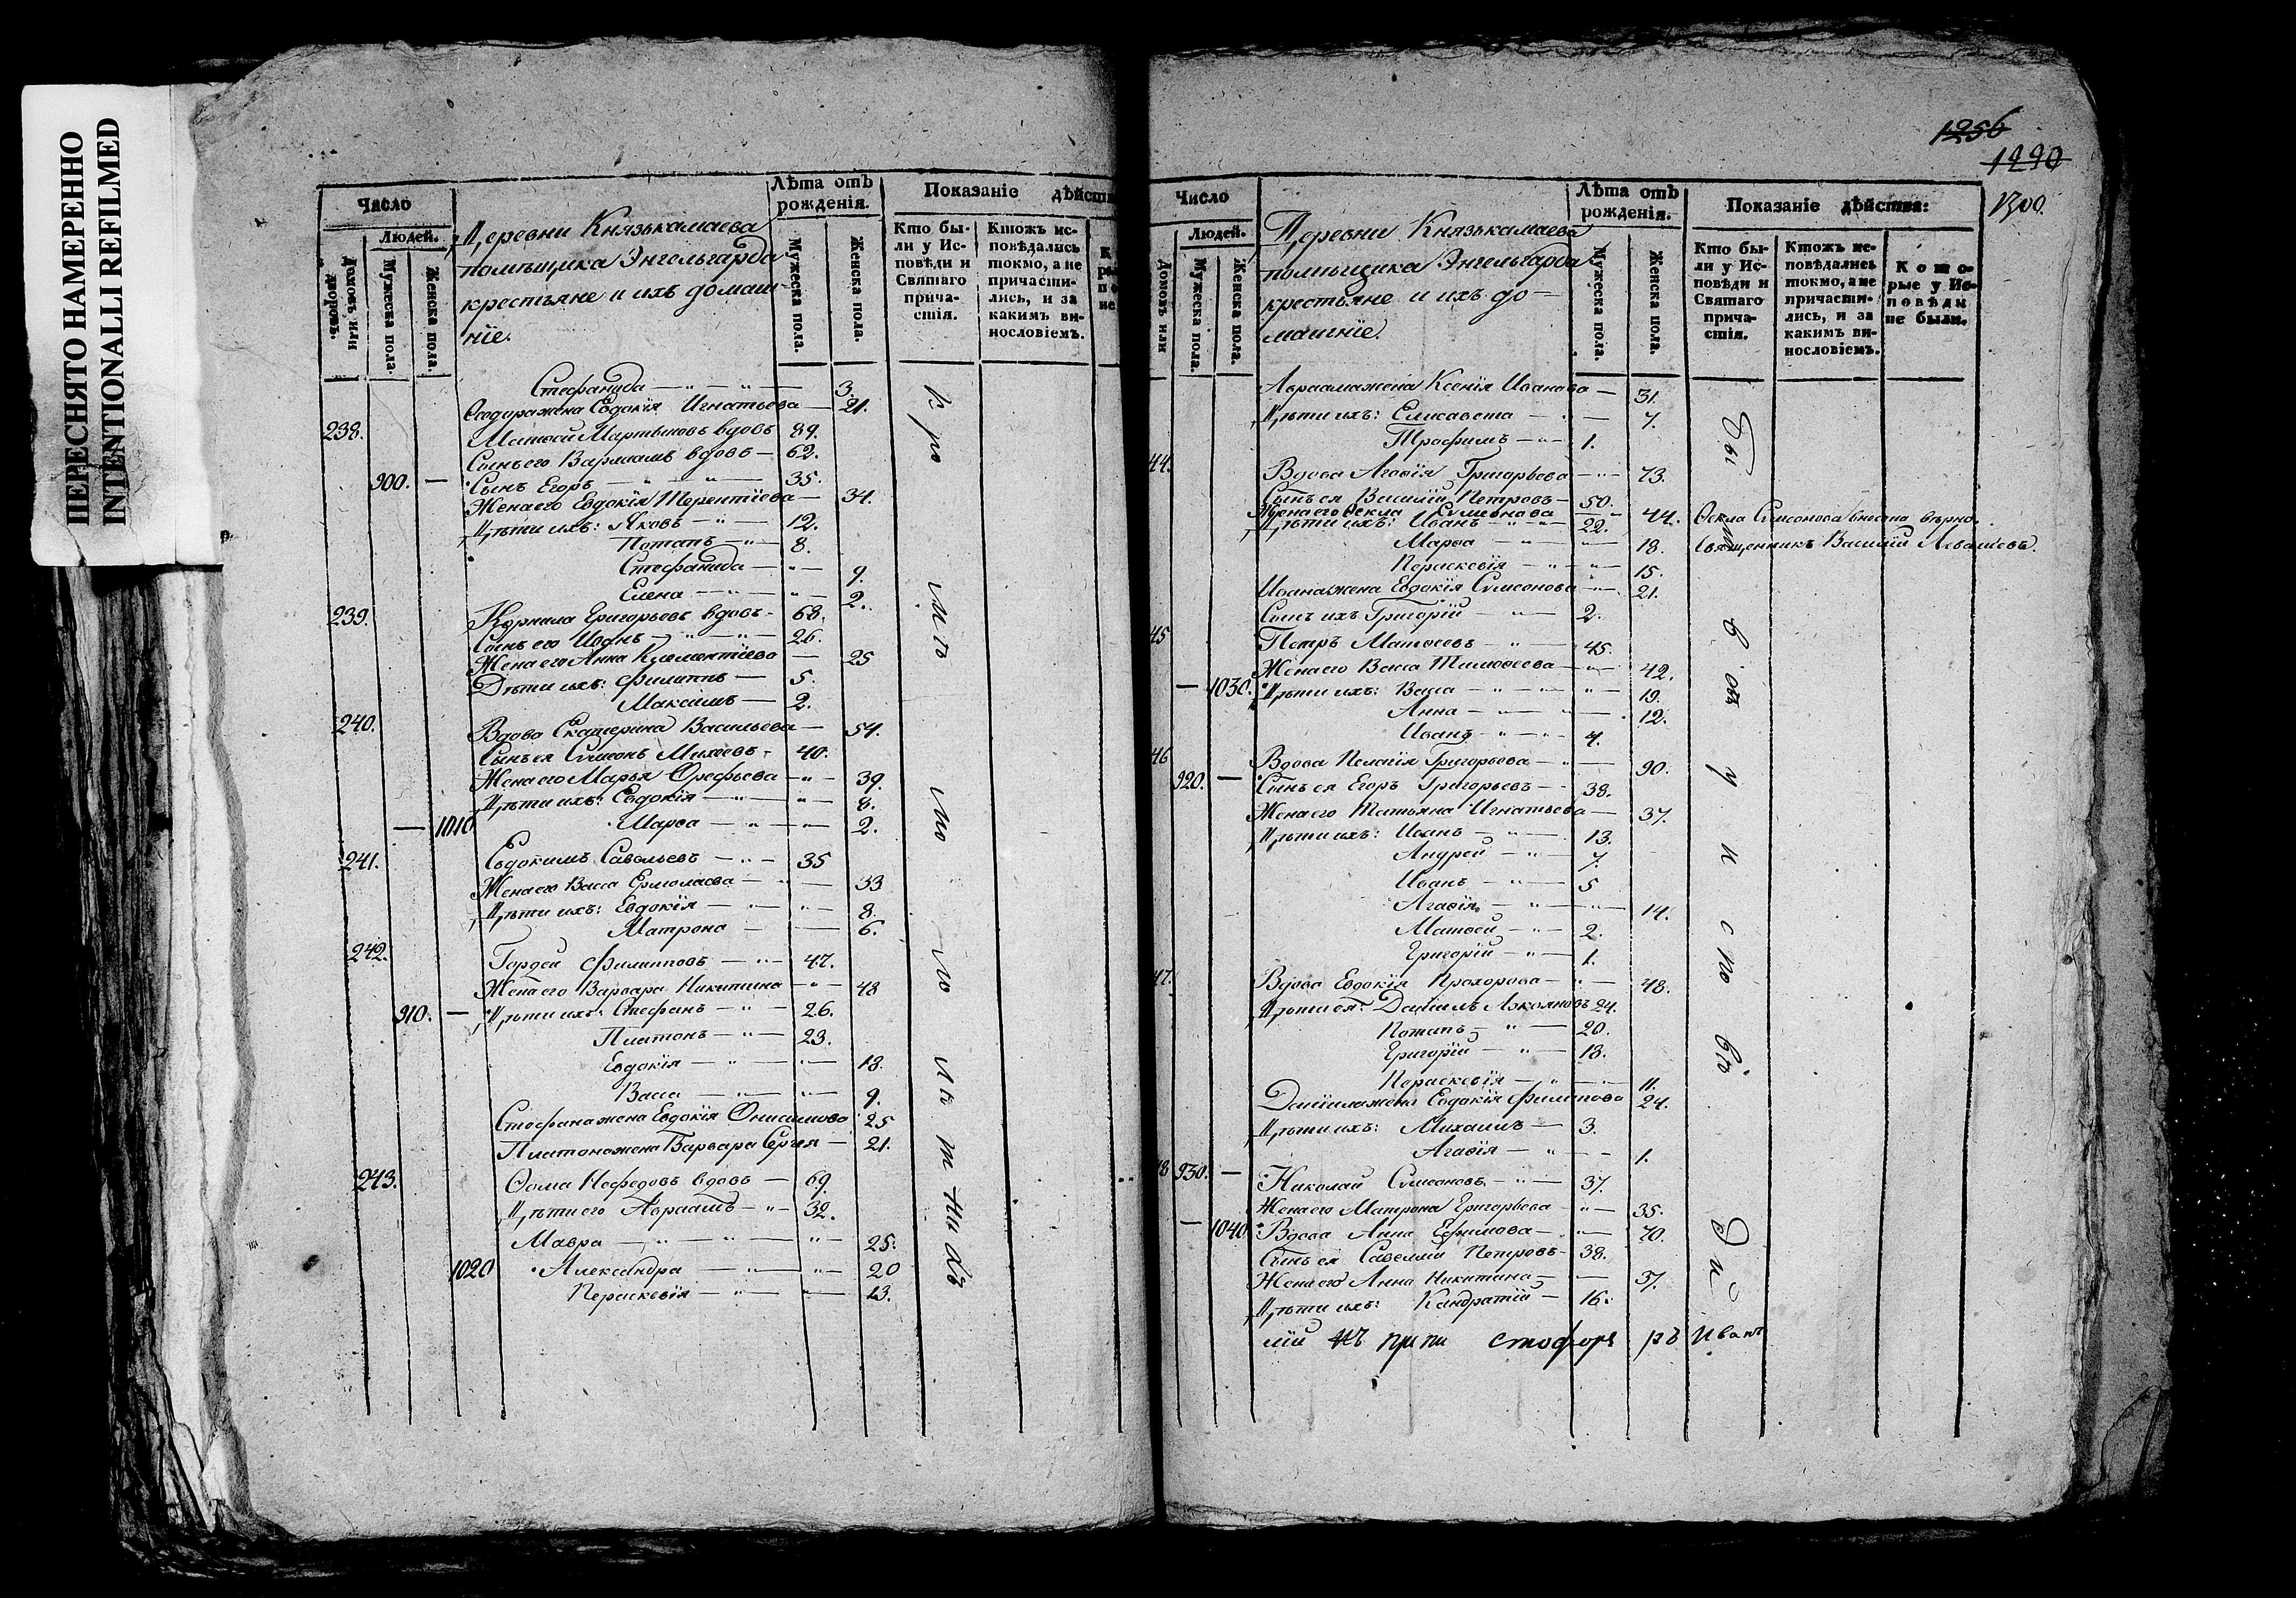 ПЕРЕСНЯТО НАМЕРЕННО
INTENTIONALLI REFILMED
Число
Людей.
Домовъ или дворовъ.
Мужеска пола.
Женска пола.
Деревни Князькамаева
помѣщика Энгельгарда
крестьяне и ихъ домаш-
нїе.
Лѣта отъ рожденїя.
Мужеска пола.
Женска пола.
Показанїе дѣйств
Кто бы-
ли у Ис-
повѣди и
Святаго
прича-
стїя.
Ктожъ ис-
повѣдались
токмо, а не
причасти-
лись, и за
какимъ ви-
нословїемъ.
Стефанида — 3.
Ѳедора жена Евдокїя Игнатьева — 21.
238. Матѳей Мартыновъ вдовъ 89.
Сынъ его Варлаамъ вдовъ — 62.
900. — Сынъ Егоръ — 35.
Жена его Евдокїя Терентїева — 34.
Дѣти ихъ: Яковъ — 12.
Потапъ — 8.
Стефанида — 9.
Елена — 2.
239. Корнила Григорьевъ вдовъ — 68.
Сынъ его Иванъ — 26.
Жена его Анна Клементїева — 25
Дѣти ихъ: Филиппъ — 5.
Максимъ — 2.
240. Вдова Екатерина Васильева — 54.
Сынъ ея Симеонъ Михеевъ — 40.
Жена его Марья Орефьева — 39.
Дѣти ихъ: Евдокїя — 8.
— 1010 Марѳа — 2.
241. Евдокимъ Савельевъ — 35
Жена его Васса Ермолаева — 33
Дѣти ихъ: Евдокїя — 8.
Матрона — 6.
242. Гордей Филипповъ — 47.
Жена его Варвара Никитина — 48
910. — Дѣти ихъ: Стефанъ — 26.
Платонъ — 23.
Евдокїя — 18.
Васса — 9.
Стефана жена Евдокїя Онисимова 25
Платона жена Варвара Сергея — 21.
243. Ѳома Нефедовъ вдовъ — 69.
Дѣти его Авраамъ — 32.
Мавра — 25.
1020 Александра — 20
Перасковїя — 13.
1256
1290
1300.
Число
Людей.
Домовъ или
Мужеска пола.
Женска пола.
Деревни Князькамаева
помѣщика Энгельгарда
крестьяне и ихъ до-
машнїе.
Лѣта отъ рожденїя.
Мужеска пола.
Женска пола.
Показанїе дѣйства:
Кто бы-
ли у Ис-
повѣди и
Святаго
прича-
стїя.
Ктожъ ис-
повѣдались
токмо, а не
причасти-
лись, и за
какимъ ви-
нословїемъ.
Кото-
рые у Ис-
повѣди
не были.
Авраама жена Ксенїя Иванова — 31.
Дѣти ихъ: Елисавета — 7.
Трофимъ — 1.
44. Вдова Агафїя Григорьева — 73.
Сынъ ея Василїй Петровъ — 50.
Жена его Ѳекла Симеонова — 44. Ѳекла Симеонова внесена вѣрно.
Дѣти ихъ: Иванъ — 22.
Марѳа — 18. Священникъ Василїй
Перасковїя — 15.
Ивана жена Евдокїя Симеонова — 21.
Сынъ ихъ Григорїй — 2.
45 Петръ Матѳеевъ — 45.
Жена его Васса Тимоѳеева — 42.
— 1030. Дѣти ихъ: Васса — 19.
Анна — 12.
Иванъ — 4.
46 Вдова Пелагїя Григорьева — 90.
920. — Сынъ ея Егоръ Григорьевъ — 38.
Жена его Татьяна Игнатьева — 37.
Дѣти ихъ: Иванъ — 13.
Андрей — 7.
Иванъ — 5
Агафїя — 14.
Матѳей — 2.
Григорїй — 1.
47. Вдова Евдокїя Прохорова — 48.
Дѣти ея: Данїилъ Лукояновъ 24.
Потапъ — 20.
Григорїй — 13.
Перасковїя — 11.
Данїила жена Евдокїя Филипова 24.
Дѣти ихъ: Михаилъ — 3.
Агафїя — 1.
48 930. — Николай Симеоновъ — 37.
Жена его Матрона Григорьева — 35.
— 1040 Вдова Анна Ефимова — 70.
Сынъ ея Савелїй Петровъ — 38.
Жена его Анна Никитина — 37.
Дѣти ихъ: Кандратїй — 16.
Иван